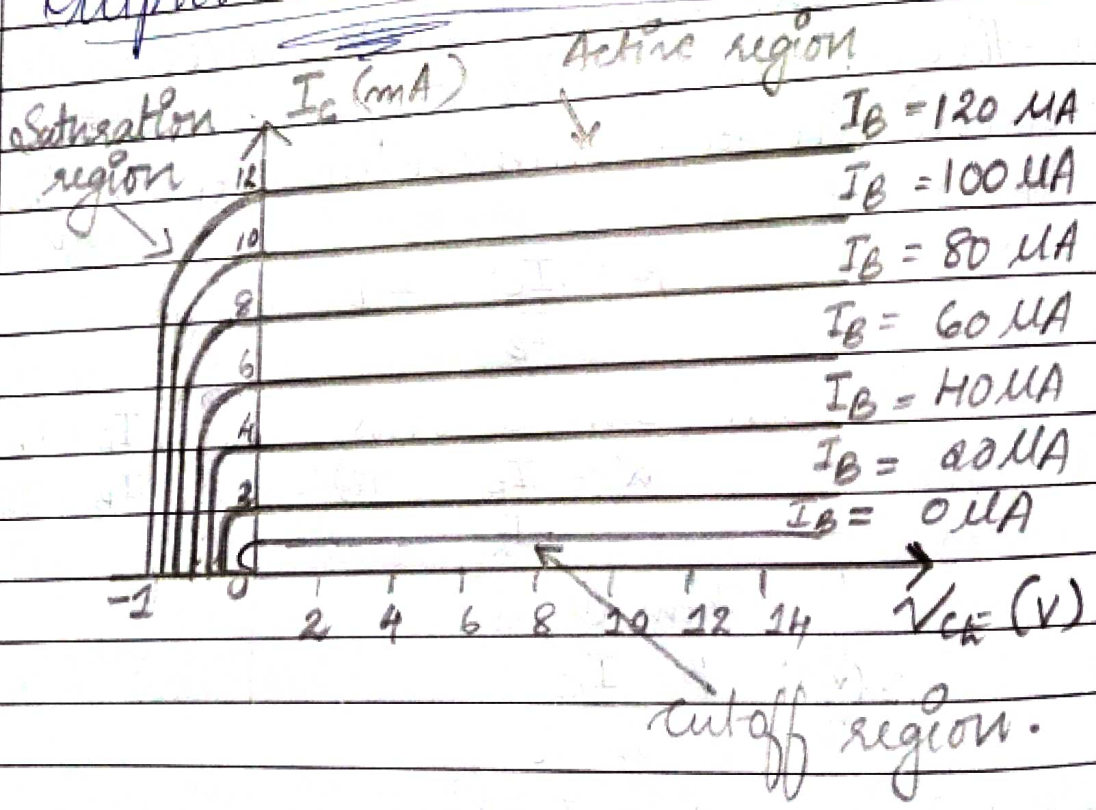 Active region
I_C (mA)
Saturation
region
I_B = 120 μA
I_B = 100 μA
I_B = 80 μA
I_B = 60 μA
I_B = 40 μA
I_B = 20 μA
I_B = 0 μA
12
10
8
6
4
2
-1 0 2 4 6 8 10 12 14 V_CE (V)
cutoff region.